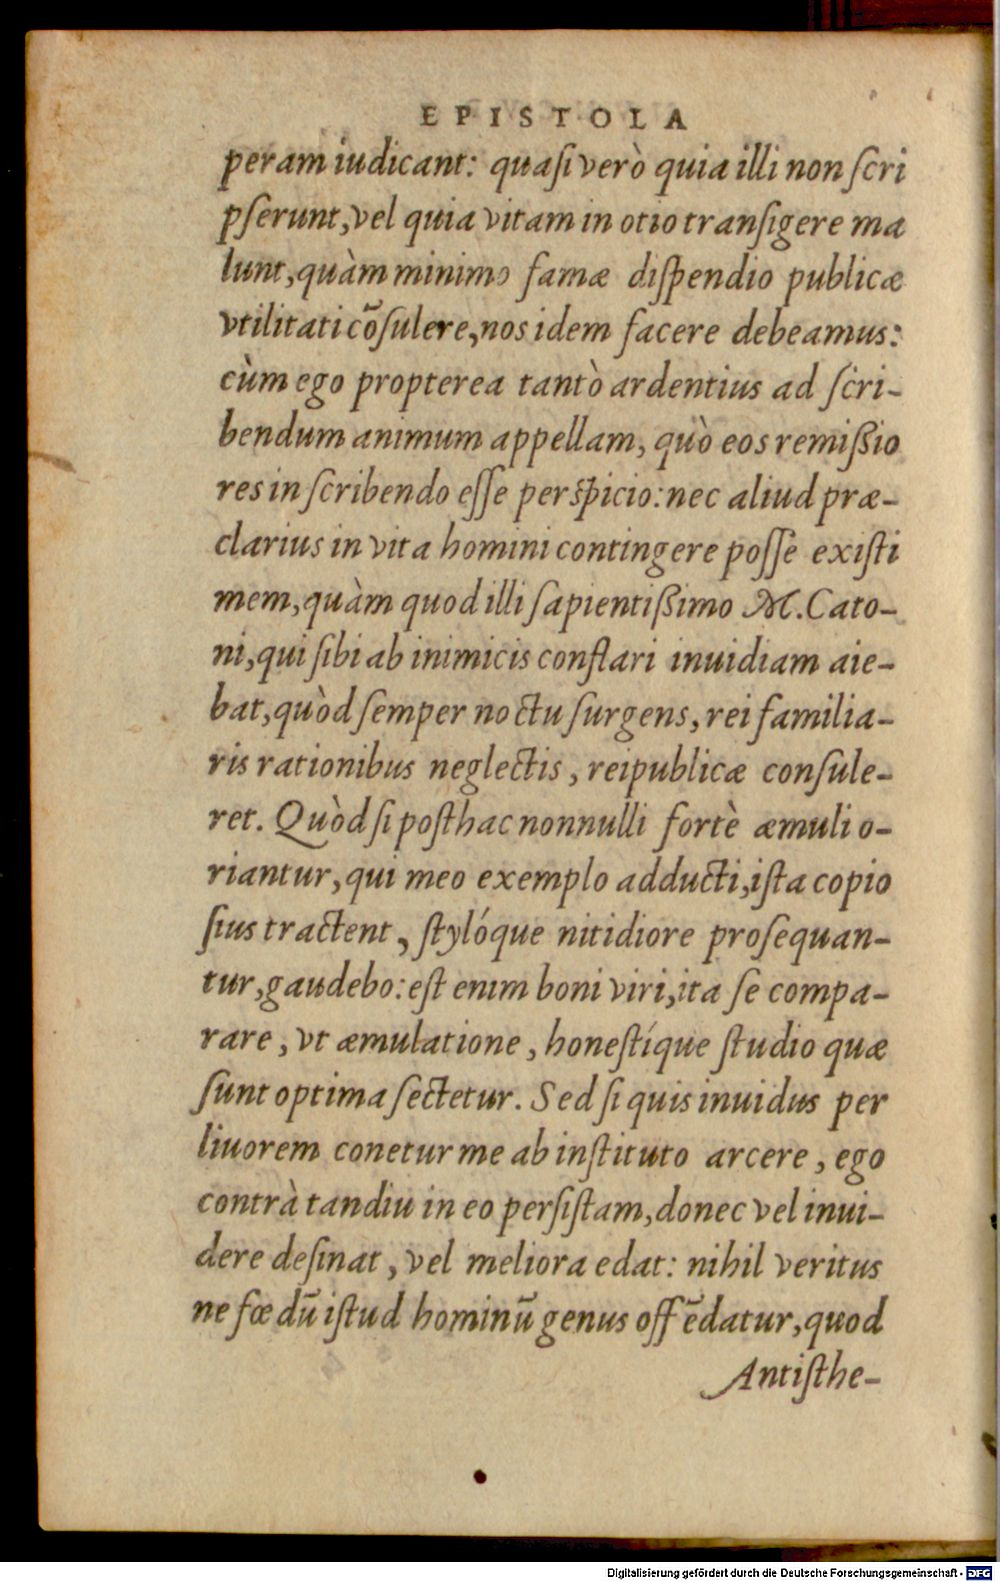 EPISTOLA
peram iudicant: quasi verò quia illi non scri
pserunt, vel quia vitam in otio transigere ma
lunt, quàm minimo famæ dispendio publicæ
vtilitati cōsulere, nos idem facere debeamus:
cùm ego propterea tantò ardentius ad scri-
bendum animum appellam, quò eos remißio
res in scribendo esse perspicio: nec aliud præ-
clarius in vita homini contingere posse existi
mem, quàm quod illi sapientißimo M. Cato-
ni, qui sibi ab inimicis conflari inuidiam aie-
bat, quòd semper noctu surgens, rei familia-
ris rationibus neglectis, reipublicæ consule-
ret. Quòd si posthac nonnulli fortè æmuli o-
riantur, qui meo exemplo adducti, ista copio
sius tractent, stylóque nitidiore prosequan-
tur, gaudebo: est enim boni viri, ita se compa-
rare, vt æmulatione, honestíque studio quæ
sunt optima sectetur. Sed si quis inuidus per
liuorem conetur me ab instituto arcere, ego
contrà tandiu in eo persistam, donec vel inui-
dere desinat, vel meliora edat: nihil veritus
ne fœdū istud hominū genus offēdatur, quod
Antisthe-
Digitalisierung gefördert durch die Deutsche Forschungsgemeinschaft - DFG